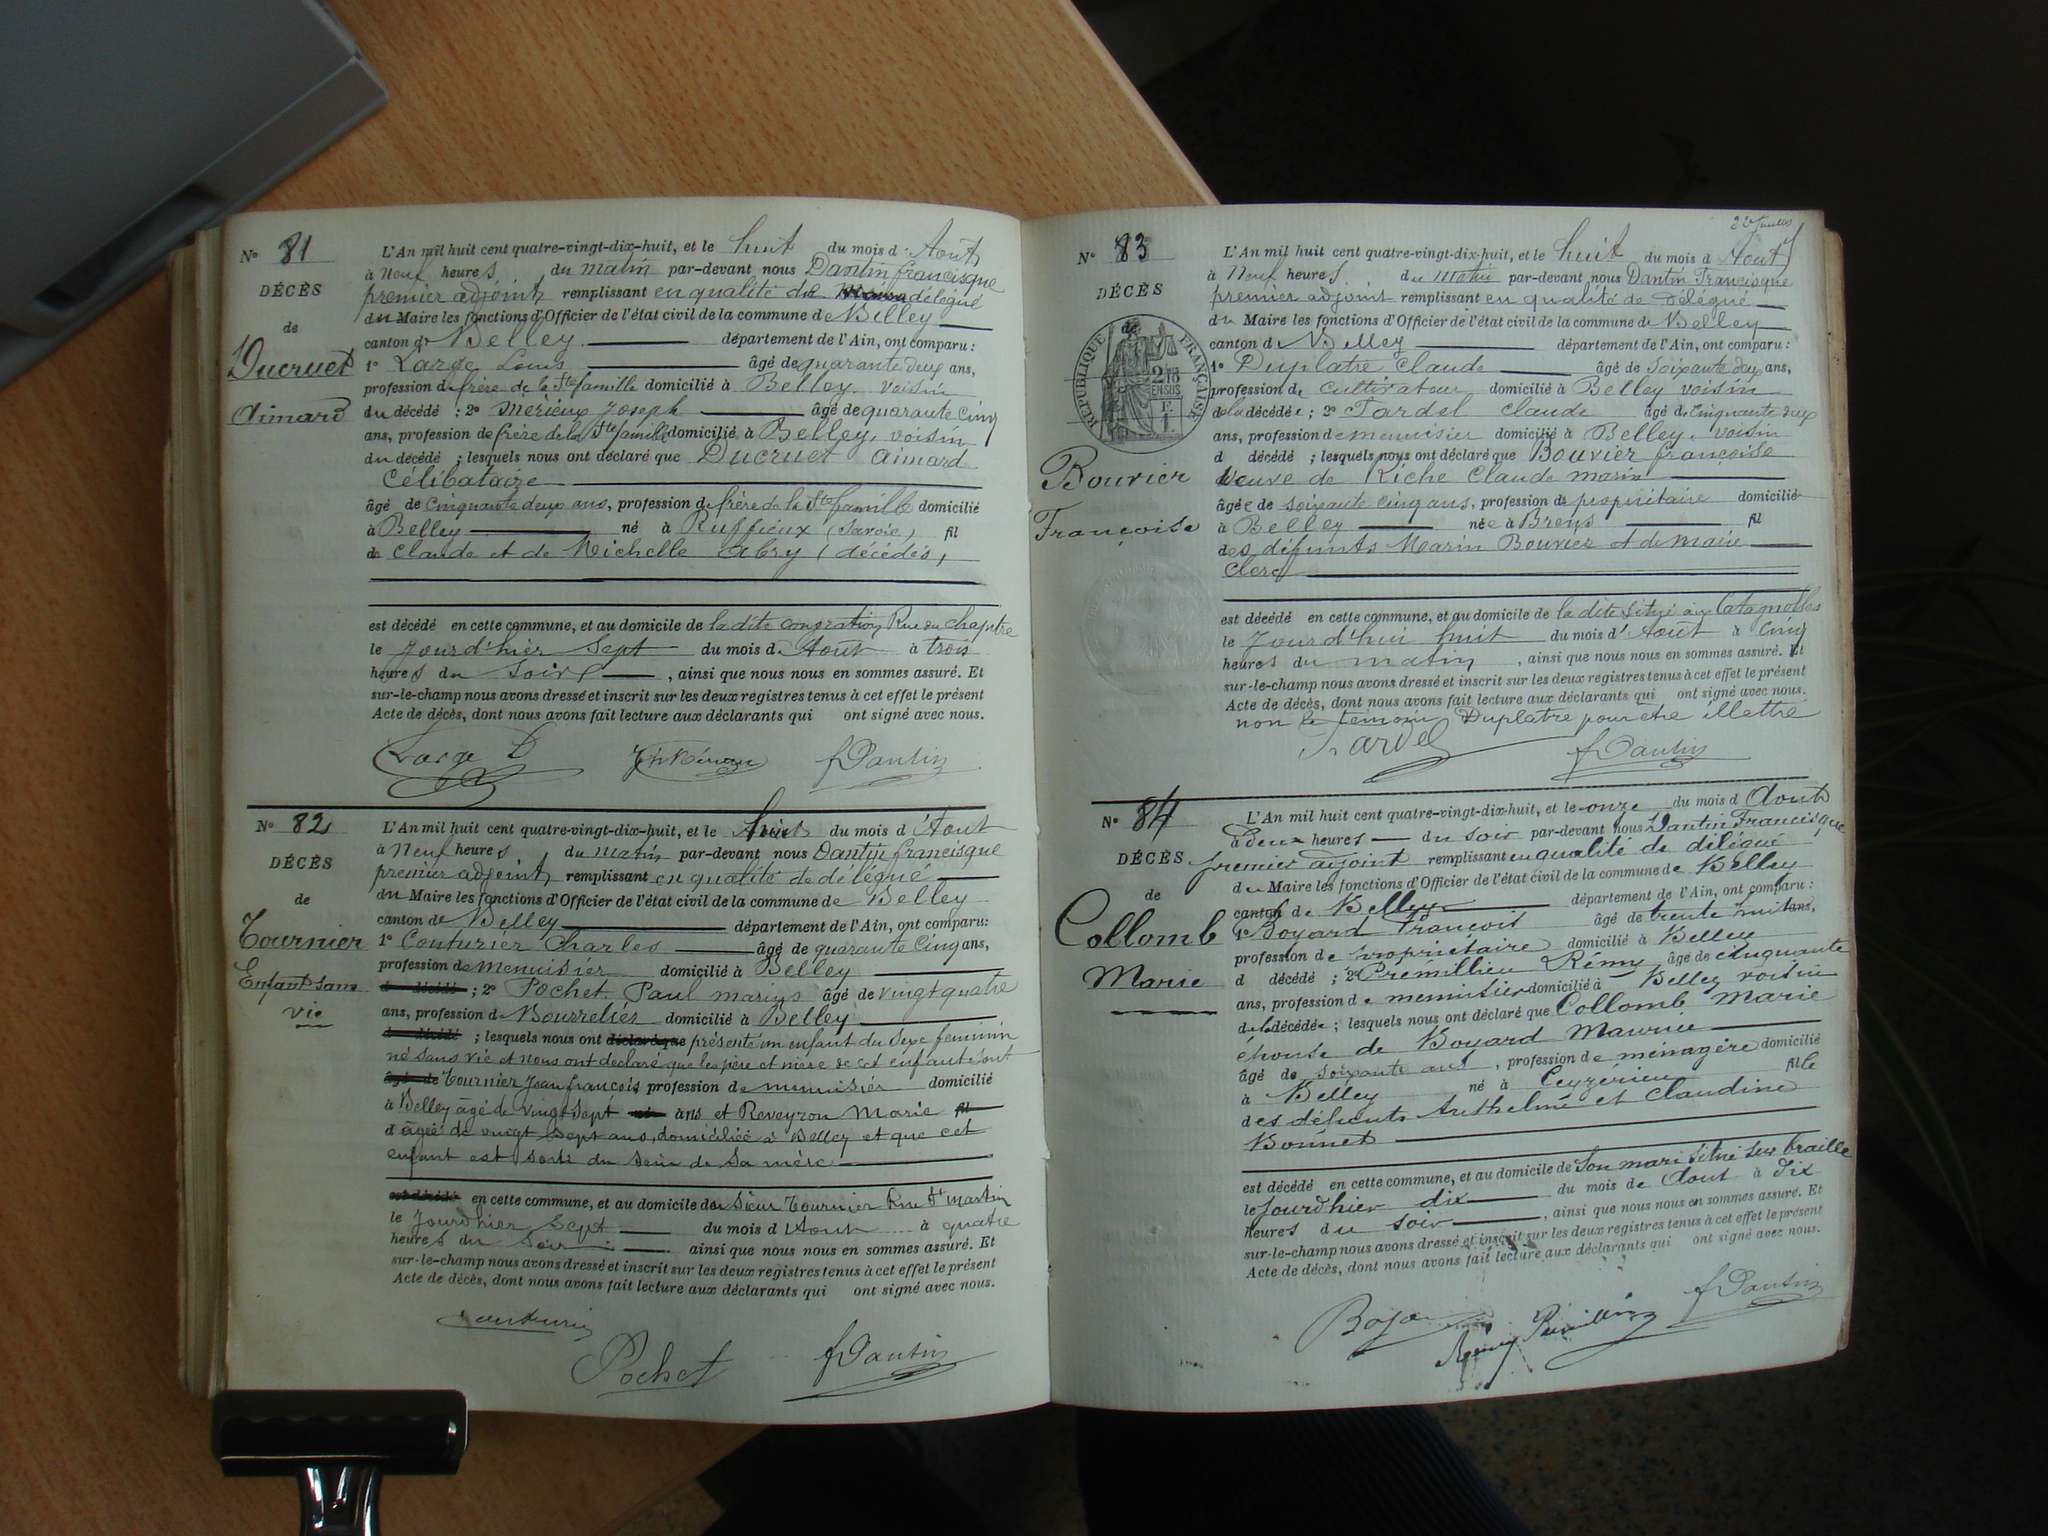 No 81
DÉCÈS
de
Ducruet
Aimard
L'An mil huit cent quatre-vingt-dix-huit, et le huit du mois d' Août
à Neuf heures du matin par-devant nous Dantin francisque
premier adjoint remplissant en qualité de délégué
du Maire les fonctions d'Officier de l'état civil de la commune de Belley
canton de Belley département de l'Ain, ont comparu :
1o Large Louis âgé de quarante deux ans,
profession de frère de la Ste famille domicilié à Belley voisin
du décédé ; 2o Mérieux Joseph âgé de quarante cinq
ans, profession de frère de la Ste famille domicilié à Belley, voisin
du décédé ; lesquels nous ont déclaré que Ducruet Aimard
Célibataire
âgé de Cinquante deux ans, profession de frère de la Ste famille domicilié
à Belley né à Ruffieux (Savoie) fil
de Claude et de Michelle Abry (décédés)
est décédé en cette commune, et au domicile de la dite congration Rue du chapitre
le Jour d'hier Sept du mois de Août à trois
heures du Soir , ainsi que nous nous en sommes assuré. Et
sur-le-champ nous avons dressé et inscrit sur les deux registres tenus à cet effet le présent
Acte de décès, dont nous avons fait lecture aux déclarants qui ont signé avec nous.
Large L fDantin
No 82
DÉCÈS
de
Tournier
Enfant sans
vie
L'An mil huit cent quatre-vingt-dix-huit, et le huit du mois d' Août
à Neuf heures du matin par-devant nous Dantin francisque
premier adjoint remplissant en qualité de délégué
du Maire les fonctions d'Officier de l'état civil de la commune de Belley
canton de Belley département de l'Ain, ont comparu:
1o Couturier Charles âgé de quarante Cinq ans,
profession de menuisier domicilié à Belley
d décédé ; 2o Pochet Paul marius âgé de vingt quatre
ans, profession de Bourrelier domicilié à Belley
d décédé ; lesquels nous ont déclaré que présenté un enfant du Sexe feminin
né sans vie et nous ont déclaré que les père et mère de cet enfant sont
âgé de Tournier Jean francois profession de menuisier domicilié
à Belley âgé de vingt sept ans et Reveyron Marie fil
d âgée de vingt sept ans, domiciliée à Belley et que cet
enfant est sorti du sein de sa mère
est décédé en cette commune, et au domicile du Sieur Tournier Rue St Martin
le Jourd'hier Sept du mois d'Août à quatre
heures du Soir ainsi que nous nous en sommes assuré. Et
sur-le-champ nous avons dressé et inscrit sur les deux registres tenus à cet effet le présent
Acte de décès, dont nous avons fait lecture aux déclarants qui ont signé avec nous.
Couturier
Pochet fDantin
No 83
DÉCÈS
de
RÉPUBLIQUE FRANÇAISE
Bouvier
Françoise
L'An mil huit cent quatre-vingt-dix-huit, et le huit du mois d Août
à Neuf heures du matin par-devant nous Dantin Francisque
premier adjoint remplissant en qualité de délégué
du Maire les fonctions d'Officier de l'état civil de la commune de Belley
canton de Belley département de l'Ain, ont comparu :
1o Duplatre Claude âgé de Soixante deux ans,
profession de cultivateur domicilié à Belley voisin
de la décédée ; 2o Tardel Claude âgé de Cinquante deux
ans, profession de menuisier domicilié à Belley, voisin
d décédé ; lesquels nous ont déclaré que Bouvier françoise
Veuve de Riche Claude marin
âgée de soixante cinq ans, profession de propriétaire domicilié
à Belley née à Brens fil
des défunts Marin Bouvier et de Marie
Clerc
est décédé en cette commune, et au domicile de la dite situé aux Catagnolles
le Jour d'hui huit du mois d' Août à Cinq
heures du matin , ainsi que nous nous en sommes assuré. Et
sur-le-champ nous avons dressé et inscrit sur les deux registres tenus à cet effet le présent
Acte de décès, dont nous avons fait lecture aux déclarants qui ont signé avec nous.
non le témoin Duplatre pour être illettré
Tardel fDantin
No 84
DÉCÈS
de
Collomb
Marie
L'An mil huit cent quatre-vingt-dix-huit, et le onze du mois d Août
à deux heures du soir par-devant nous Dantin Francisque
premier adjoint remplissant en qualité de délégué
du Maire les fonctions d'Officier de l'état civil de la commune de Belley
canton de Belley département de l'Ain, ont comparu :
1o Boyard François âgé de trente huit ans,
profession de propriétaire domicilié à Belley
d décédé ; 2o Prémillieu Rémy âgé de cinquante
ans, profession de menuisier domicilié à Belley voisin
de la décédée ; lesquels nous ont déclaré que Collomb Marie
épouse de Boyard Maurice
âgé de soixante ans , profession de ménagère domicilié
à Belley né à Ceyzérieu fille
des défunts Anthelme et Claudine
Bonnet
est décédé en cette commune, et au domicile de Son mari situé sur Braille
le Jourd'hier dix du mois de Août à Dix
heures du soir , ainsi que nous nous en sommes assuré. Et
sur-le-champ nous avons dressé et inscrit sur les deux registres tenus à cet effet le présent
Acte de décès, dont nous avons fait lecture aux déclarants qui ont signé avec nous.
fDantin